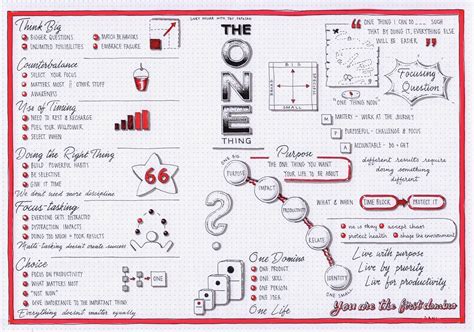 Think Big
BIGGER QUESTIONS
MATCH BEHAVIORS
UNLIMITED POSSIBILITIES
EMBRACE FAILURE
Counterbalance
SELECT YOUR FOCUS
MATTERS MOST OTHER STUFF
AWARENESS
Use of Timing
NEED TO REST & RECHARGE
FUEL YOUR WILLPOWER
SELECT WHEN
Doing the Right Thing
BUILD POWERFUL HABITS
BE SELECTIVE
GIVE IT TIME
We dont need more discipline
66
Focus-tasking
EVERYONE GETS DISTRACTED
DISTRACTION IMPACTS
DOING TOO MUCH = POOR RESULTS
Multi-tasking doesnt create success
Choice
FOCUS ON PRODUCTIVITY
WHAT MATTERS MOST
"NOT NOW"
GIVE IMPORTANCE TO THE IMPORTANT THING
Everything doesnt matter equally
ONE
THE
ONE
THING
?
BIG
SMALL
"ONE THING I CAN DO ... SUCH
THAT BY DOING IT, EVERYTHING ELSE
WILL BE EASIER"
Focusing
Question
"ONE THING NOW"
M
MATTERS - WORK AT THE JOURNEY
P
PURPOSEFUL - CHALLENGE & FOCUS
A
ACCOUNTABLE - DO - GET
different results require
doing something
different
Purpose
"THE ONE THING YOU WANT
YOUR LIFE TO BE ABOUT"
ONE BIG
PURPOSE
IMPACT
PRODUCTIVITY
RELATE
IDENTITY
ONE SMALL
WHAT & WHEN
TIME BLOCK
PROTECT IT
no is thing
accept chaos
protect health
shape the environment
Live with purpose
Live by priority
Live for productivity
You are the first domino
One Domino
ONE PRODUCT
ONE GOAL
ONE SKILL
ONE PERSON
ONE PASSION
One Life